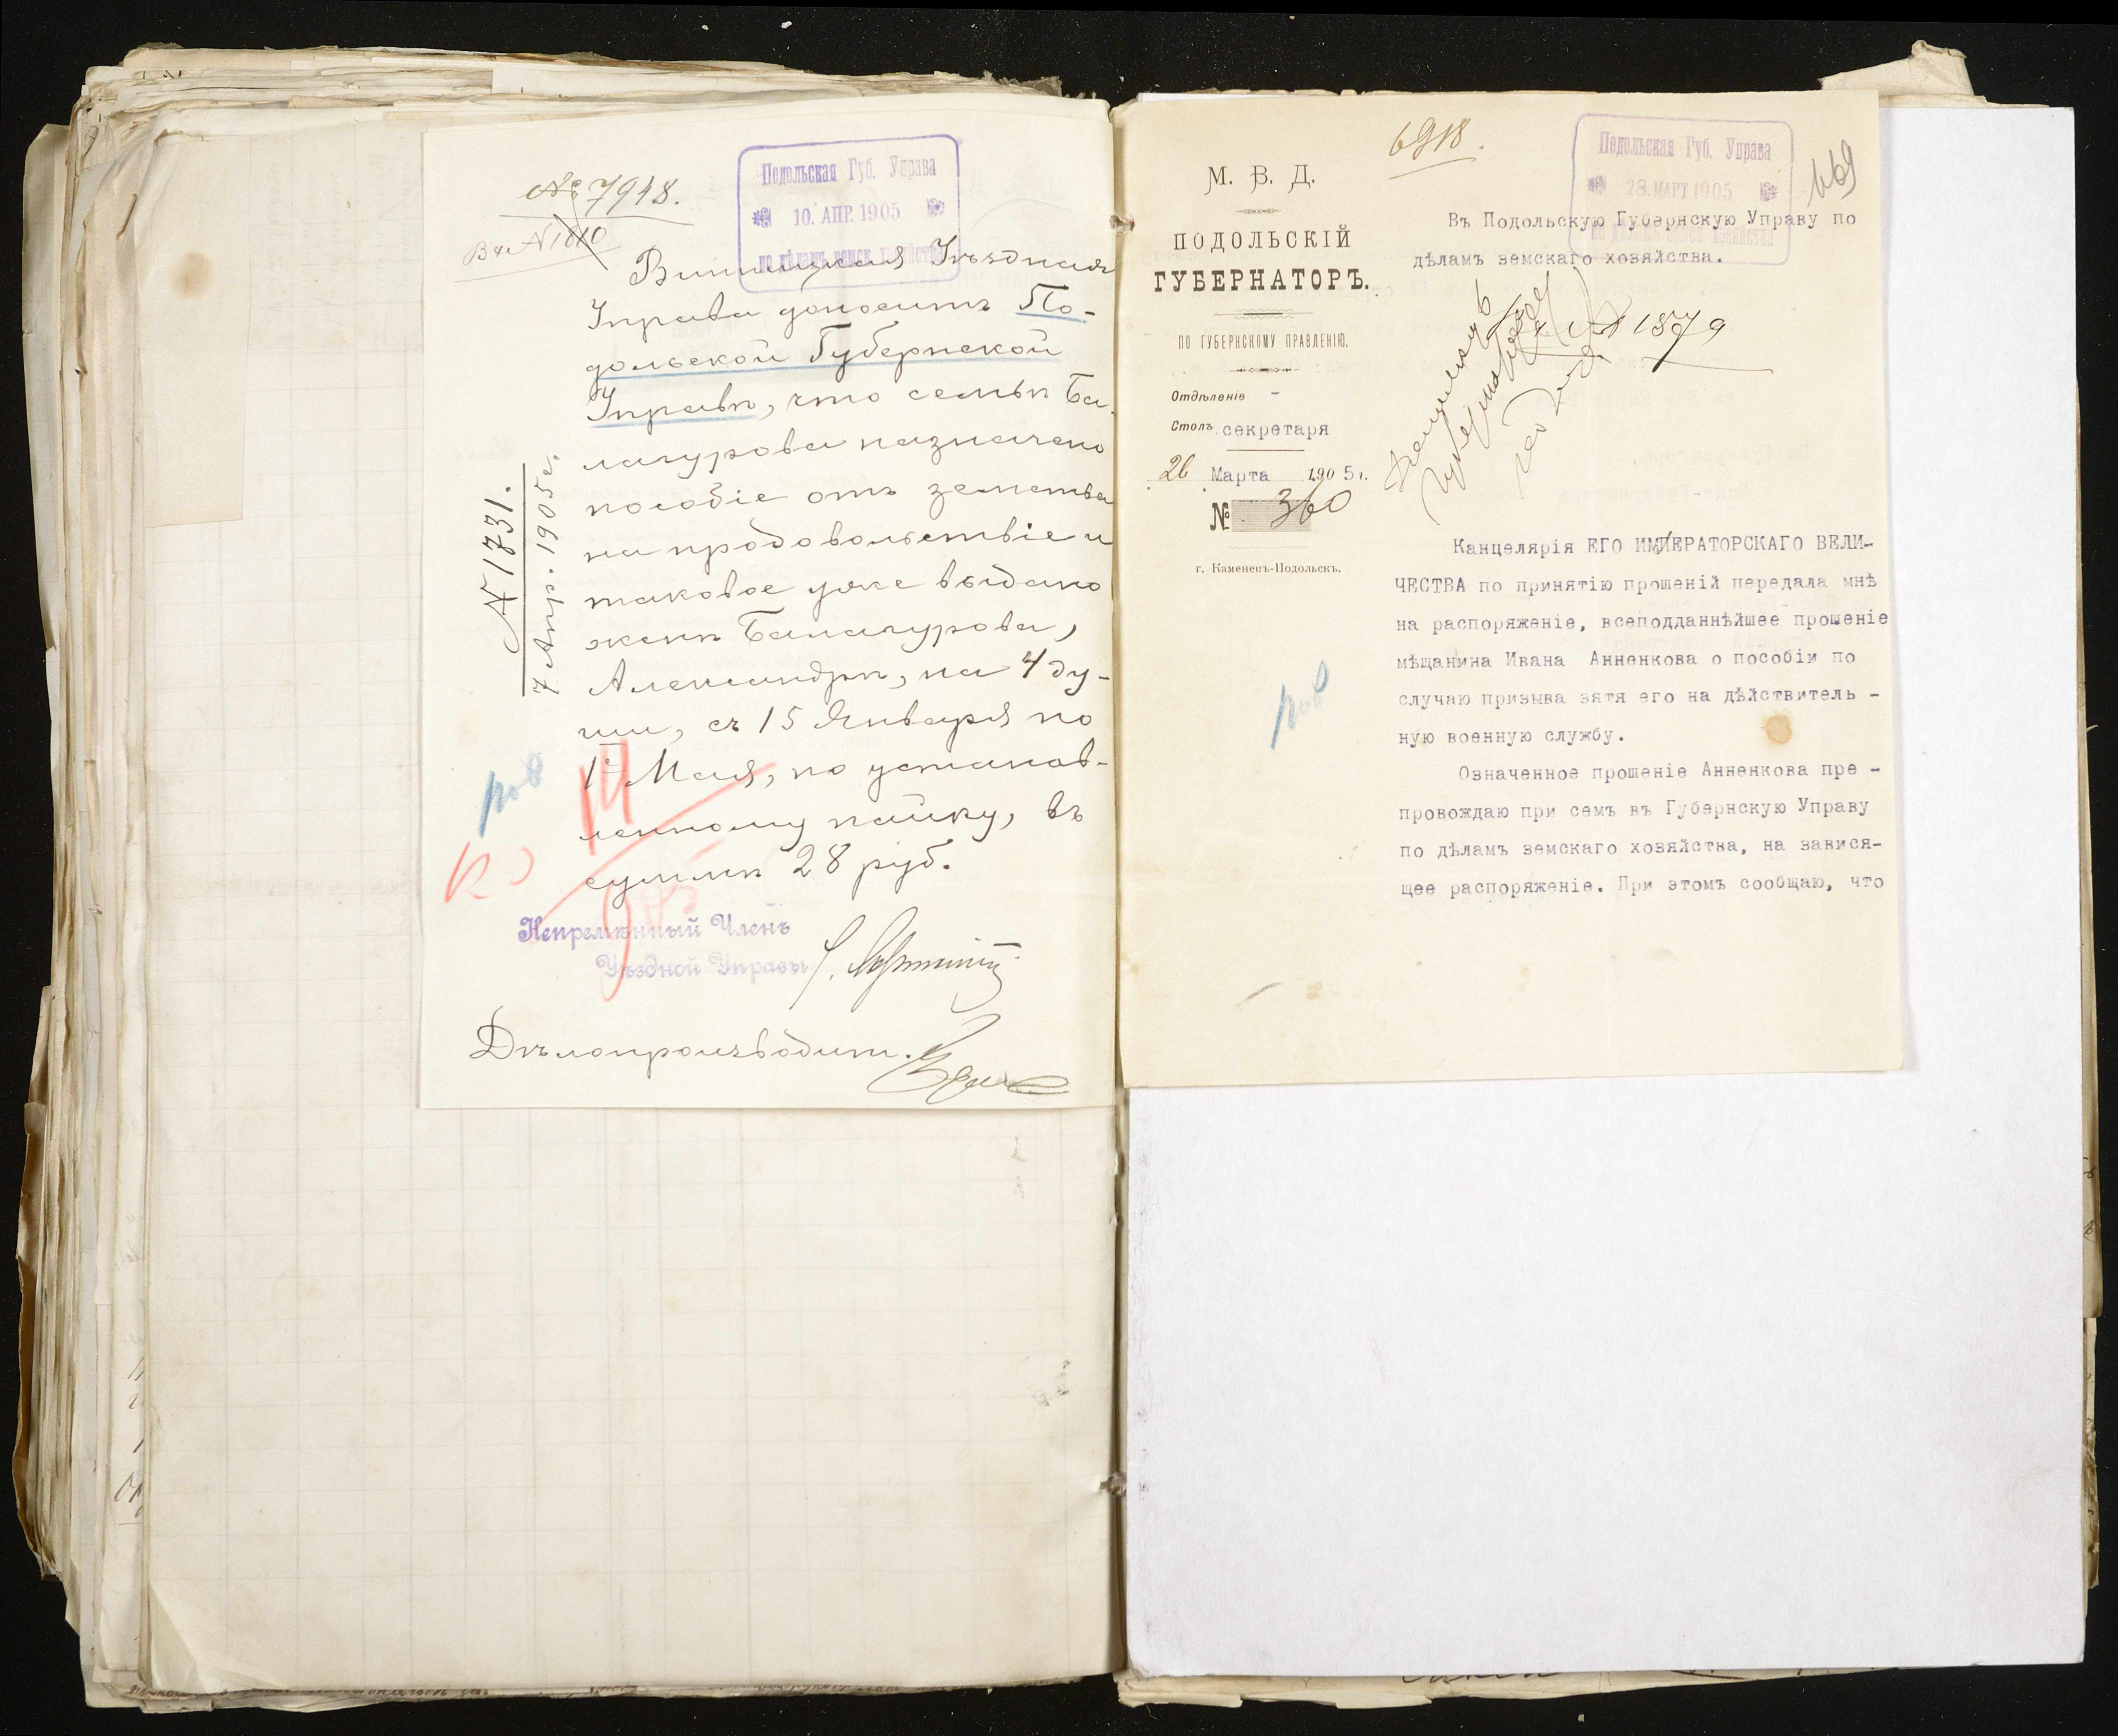 № 7948.
Подольская Губ. Управа
10. АПР. 1905
по дѣламъ земск. хозяйства
Вх. № 1810
Винницкая Уѣздная
Управа доноситъ По-
дольской Губернской
Управѣ, что семьѣ Ба-
лагурова назначено
пособіе отъ земства
на продовольствіе и
таковое уже выдано
женѣ Балагурова,
Александрѣ, на 4 ду-
ши, съ 15 Января по
1е Мая, по установ-
ленному пайку, въ
суммѣ 28 руб.
№ 1731.
7 Апр. 1905 г.
Непремѣнный Членъ
Уѣздной Управы
Дѣлопроизводит.
6918.
Подольская Губ. Управа
28. МАРТ 1905
М. В. Д.
ПОДОЛЬСКІЙ
ГУБЕРНАТОРЪ.
ПО ГУБЕРНСКОМУ ПРАВЛЕНІЮ.
Отдѣленіе -
Столъ секретаря
26 Марта 1905 г.
№ 360
г. Каменецъ-Подольскъ.
469
Въ Подольскую Губернскую Управу по
дѣламъ земскаго хозяйства.
№ 1879
Канцелярія ЕГО ИМПЕРАТОРСКАГО ВЕЛИ-
ЧЕСТВА по принятію прошеній передала мнѣ
на распоряженіе, всеподданнѣйшее прошеніе
мѣщанина Ивана Анненкова о пособіи по
случаю призыва зятя его на дѣйствитель -
ную военную службу.
Означенное прошеніе Анненкова пре -
провождаю при семъ въ Губернскую Управу
по дѣламъ земскаго хозяйства, на завися-
щее распоряженіе. При этомъ сообщаю, что